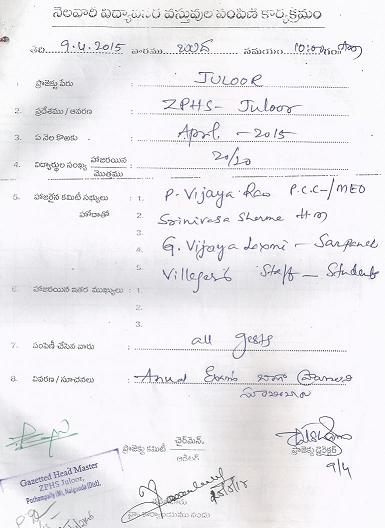 నెలవారీ విద్యార్థులకు వస్తువుల పంపిణీ కార్యక్రమం
తేది 9.4.2015 వారము బుధ సమయం 10:00
1. ప్రాజెక్టు పేరు : JULOOR
2. ప్రదేశము / ఆవరణ : ZPHS- Juloor
3. ఏ నెల కొఱకు : April - 2015
4. విద్యార్థుల సంఖ్య హాజరయిన / మొత్తము : 20/20
5. హాజరైన కమిటీ సభ్యులు : 1. P. Vijaya Rao P.C.C-/MEO
హోదాతో 2. Srinivasa Sharma H M
4. G. Vijaya Laxmi - Sarpanch
5. Villegers Staff - Students
6. హాజరయిన ఇతర ముఖ్యులు : 1.
2.
3.
7. పంపిణీ చేసిన వారు : all gests
8. వివరణ / సూచనలు : Exams బాగా
ప్రాజెక్టు కమిటీ చైర్‌మెన్.
ప్రాజెక్టు డైరెక్టర్
9/4
Gazetted Head Master
ZPHS Juloor,
Pochampally (M), Nalgonda (Dist).